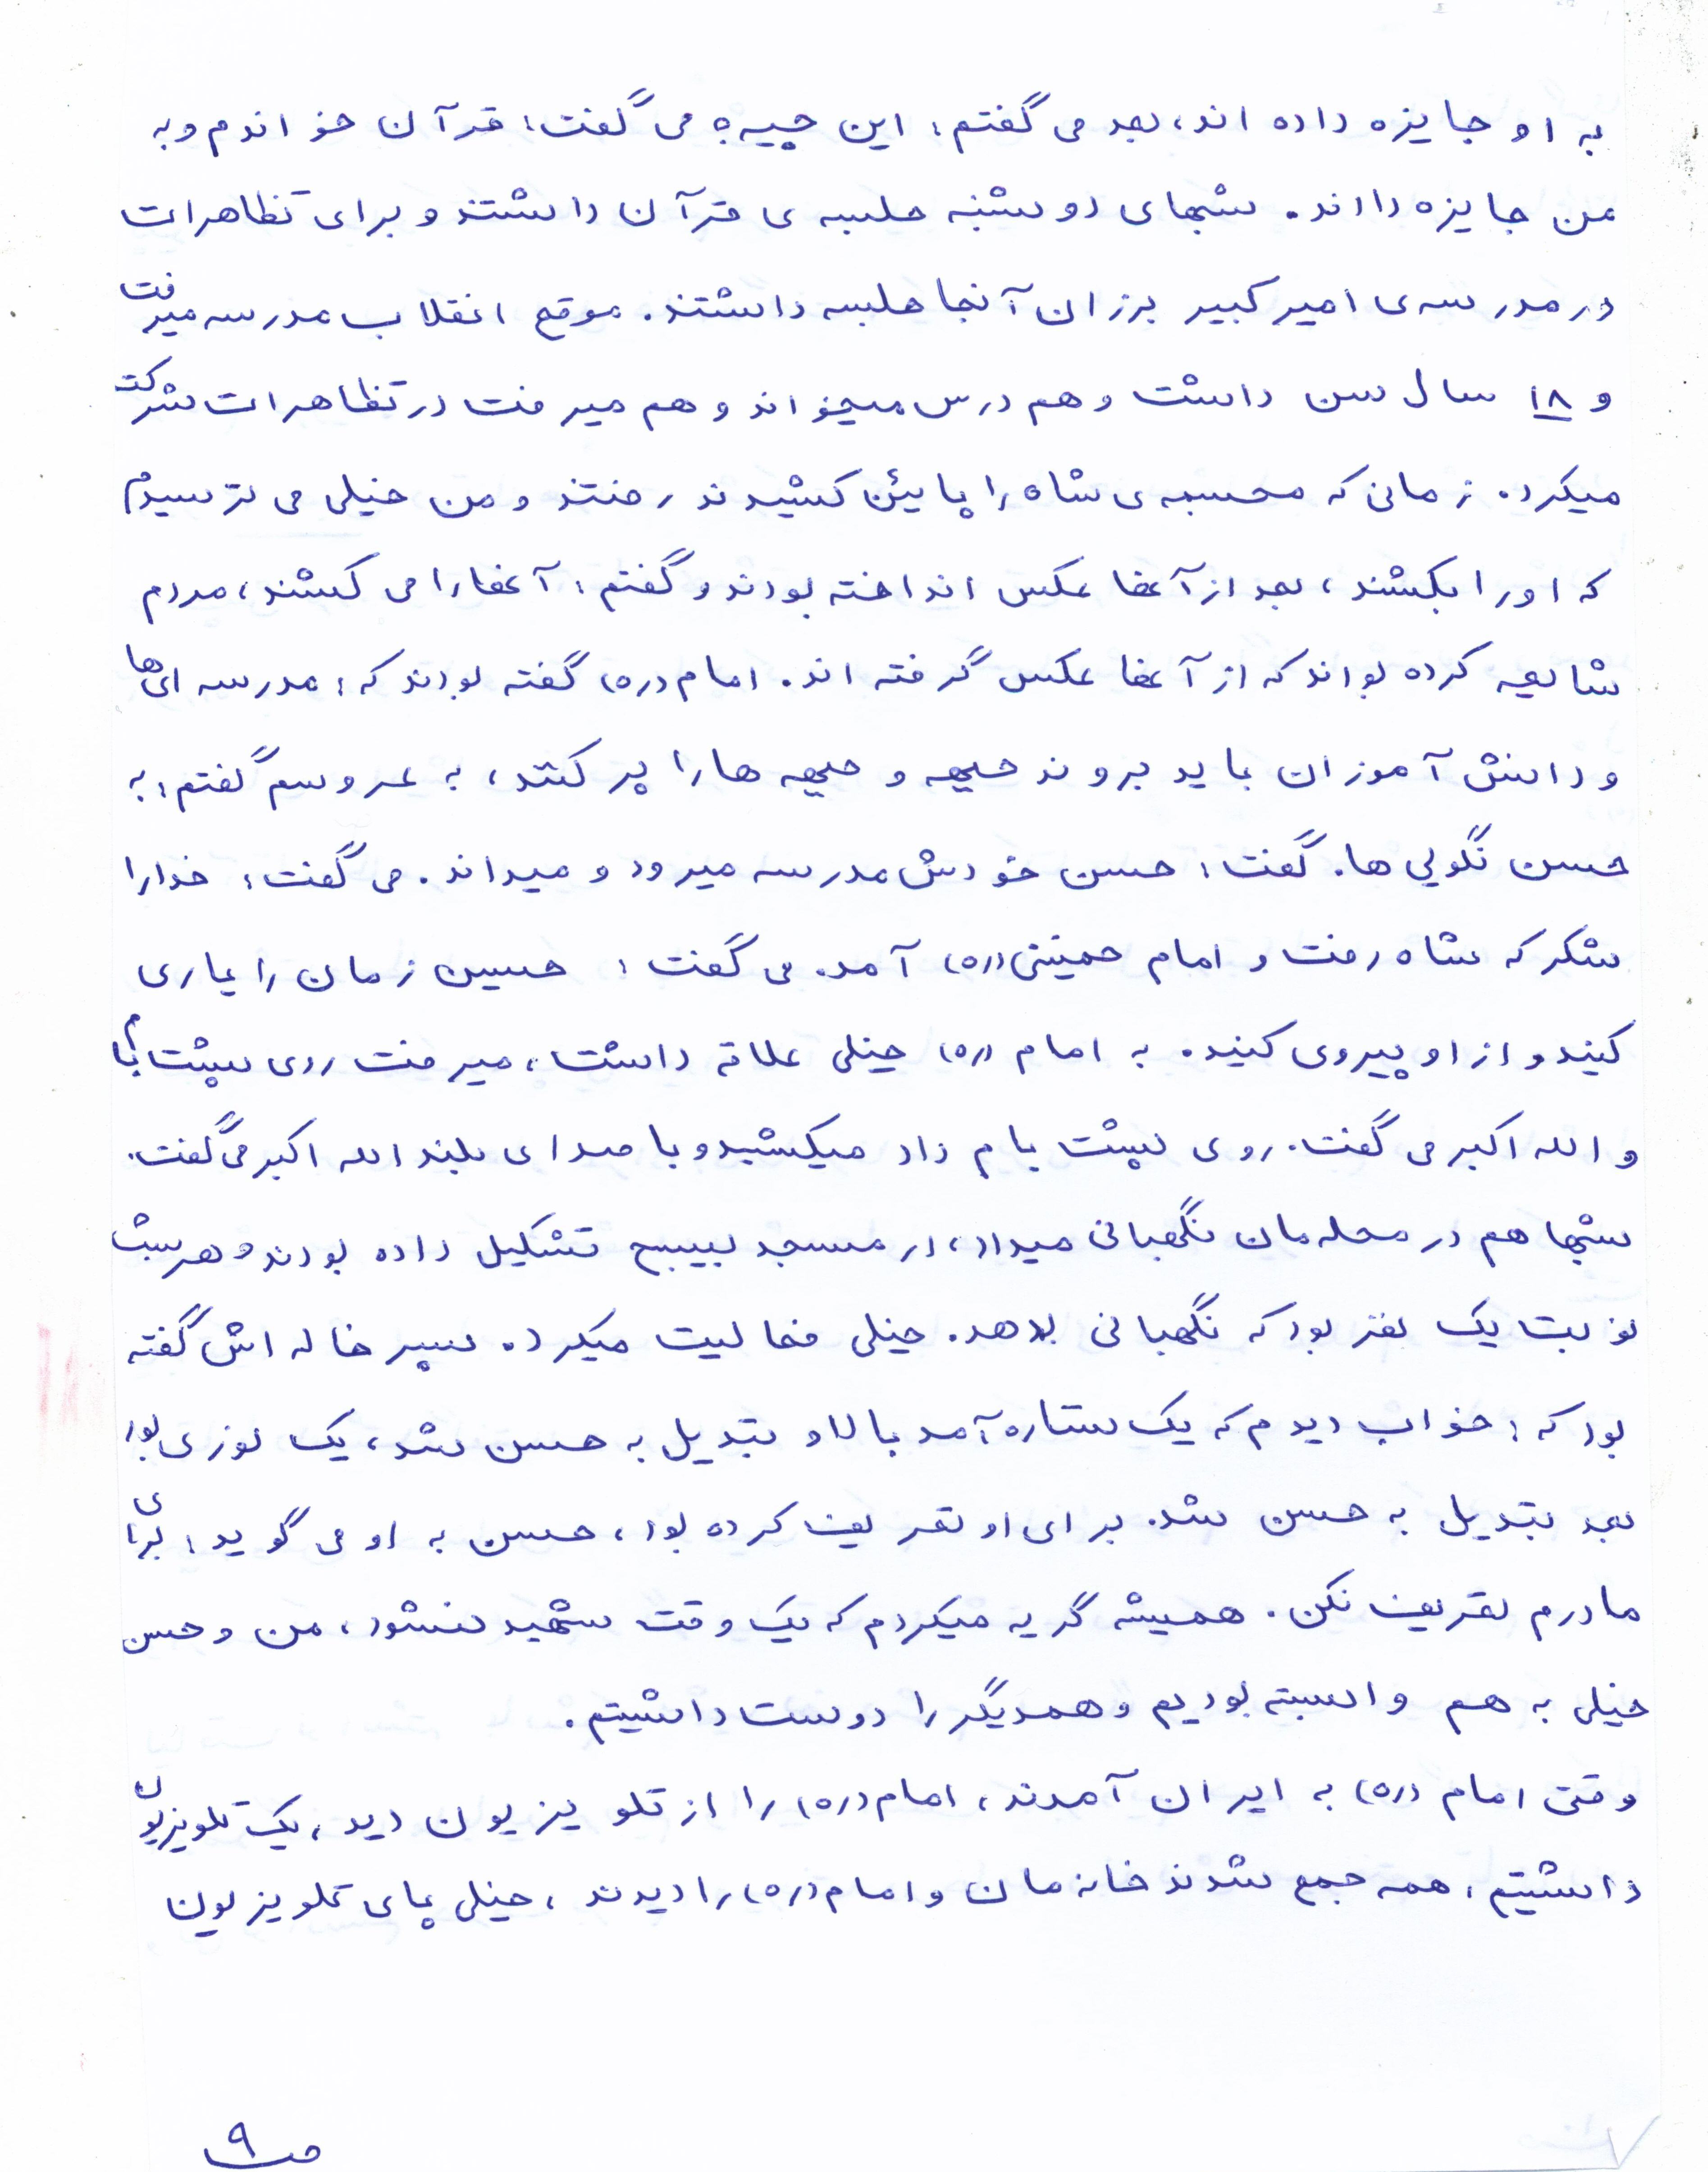 به او جایزه داده اند، بعد می گفتم: این چیه؟ می گفت: قرآن خواندم و به
من جایزه دادند. شبهای دوشنبه جلسه ی قرآن داشتند و برای تظاهرات
در مدرسه ی امیر کبیر برزان آنجا جلسه داشتند. موقع انقلاب مدرسه میرفت
و ۱۸ سال سن داشت و هم درس میخواند و هم میرفت در تظاهرات شرکت
میکرد. زمانی که مجسمه ی شاه را پایئن کشیدند رفتند و من خیلی می ترسیدم
که او را بکشند، بعد از آنها عکس انداخته بودند و گفتم: آنها را می کشند، مردم
شایعه کرده بواند که از آنها عکس گرفته اند. امام (ره) گفته بودند که: مدرسه ای ها
و دانش آموزان باید بروند جبهه و جبهه ها را پر کنند، به عروسم گفتم: به
حسن نگویی ها. گفت: حسن خودش مدرسه میرود و میداند. می گفت: خدا را
شکر که شاه رفت و امام خمینی (ره) آمد. می گفت: حسین زمان را یاری
کیند و از او پیروی کنید. به امام (ره) خیلی علاقه داشت، میرفت روی پشت بام
و الله اکبر می گفت. روی پشت بام داد میکشید و با صدای بلند الله اکبر می گفت.
شبها هم در محله مان نگهبانی میداد، در مسجد بسیج تشکیل داده بودند و هر شب
نوبت یک نفر بود که نگهبانی بدهد. خیلی فعالیت میکرد. پسر خاله اش گفته
بود که: خواب دیدم که یک ستاره آمد بالا و تبدیل به حسن شد، یک نوری بود
بعد تبدیل به حسن شد. برای او تعریف کرده بود، حسن به او می گوید: برای
مادرم تعریف نکن. همیشه گریه میکردم که یک وقت شهید نشود، من و حسن
خیلی به هم وابسته بودیم و همدیگر را دوست داشتیم.
وقتی امام (ره) به ایران آمدند، امام (ره) را از تلویزیون دید، یک تلویزیون
داشتیم، همه جمع شدند خانه مان و امام (ره) را دیدند، خیلی پای تلویزیون
ص ۹